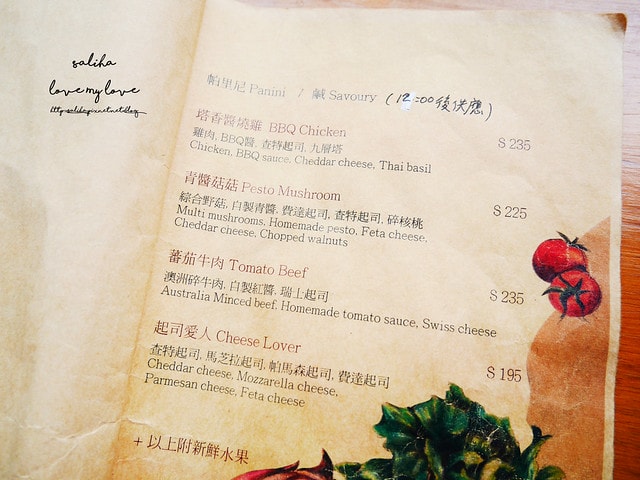 saliha
love my love
帕里尼 Panini / 鹹 Savoury (12:00後供應)
塔香醬燒雞 BBQ Chicken
$ 235
雞肉, BBQ醬, 查特起司, 九層塔
Chicken, BBQ sauce, Cheddar cheese, Thai basil
青醬菇菇 Pesto Mushroom
$ 225
綜合野菇, 自製青醬. 費達起司, 查特起司, 碎核桃
Multi mushrooms, Homemade pesto, Feta cheese,
Cheddar cheese, Chopped walnuts
蕃茄牛肉 Tomato Beef
$ 235
澳洲碎牛肉, 自製紅醬. 瑞士起司
Australia Minced beef, Homemade tomato sauce, Swiss cheese
起司愛人 Cheese Lover
$ 195
查特起司, 馬芝拉起司, 帕馬森起司, 費達起司
Cheddar cheese, Mozzarella cheese,
Parmesan cheese, Feta cheese
+ 以上附新鮮水果